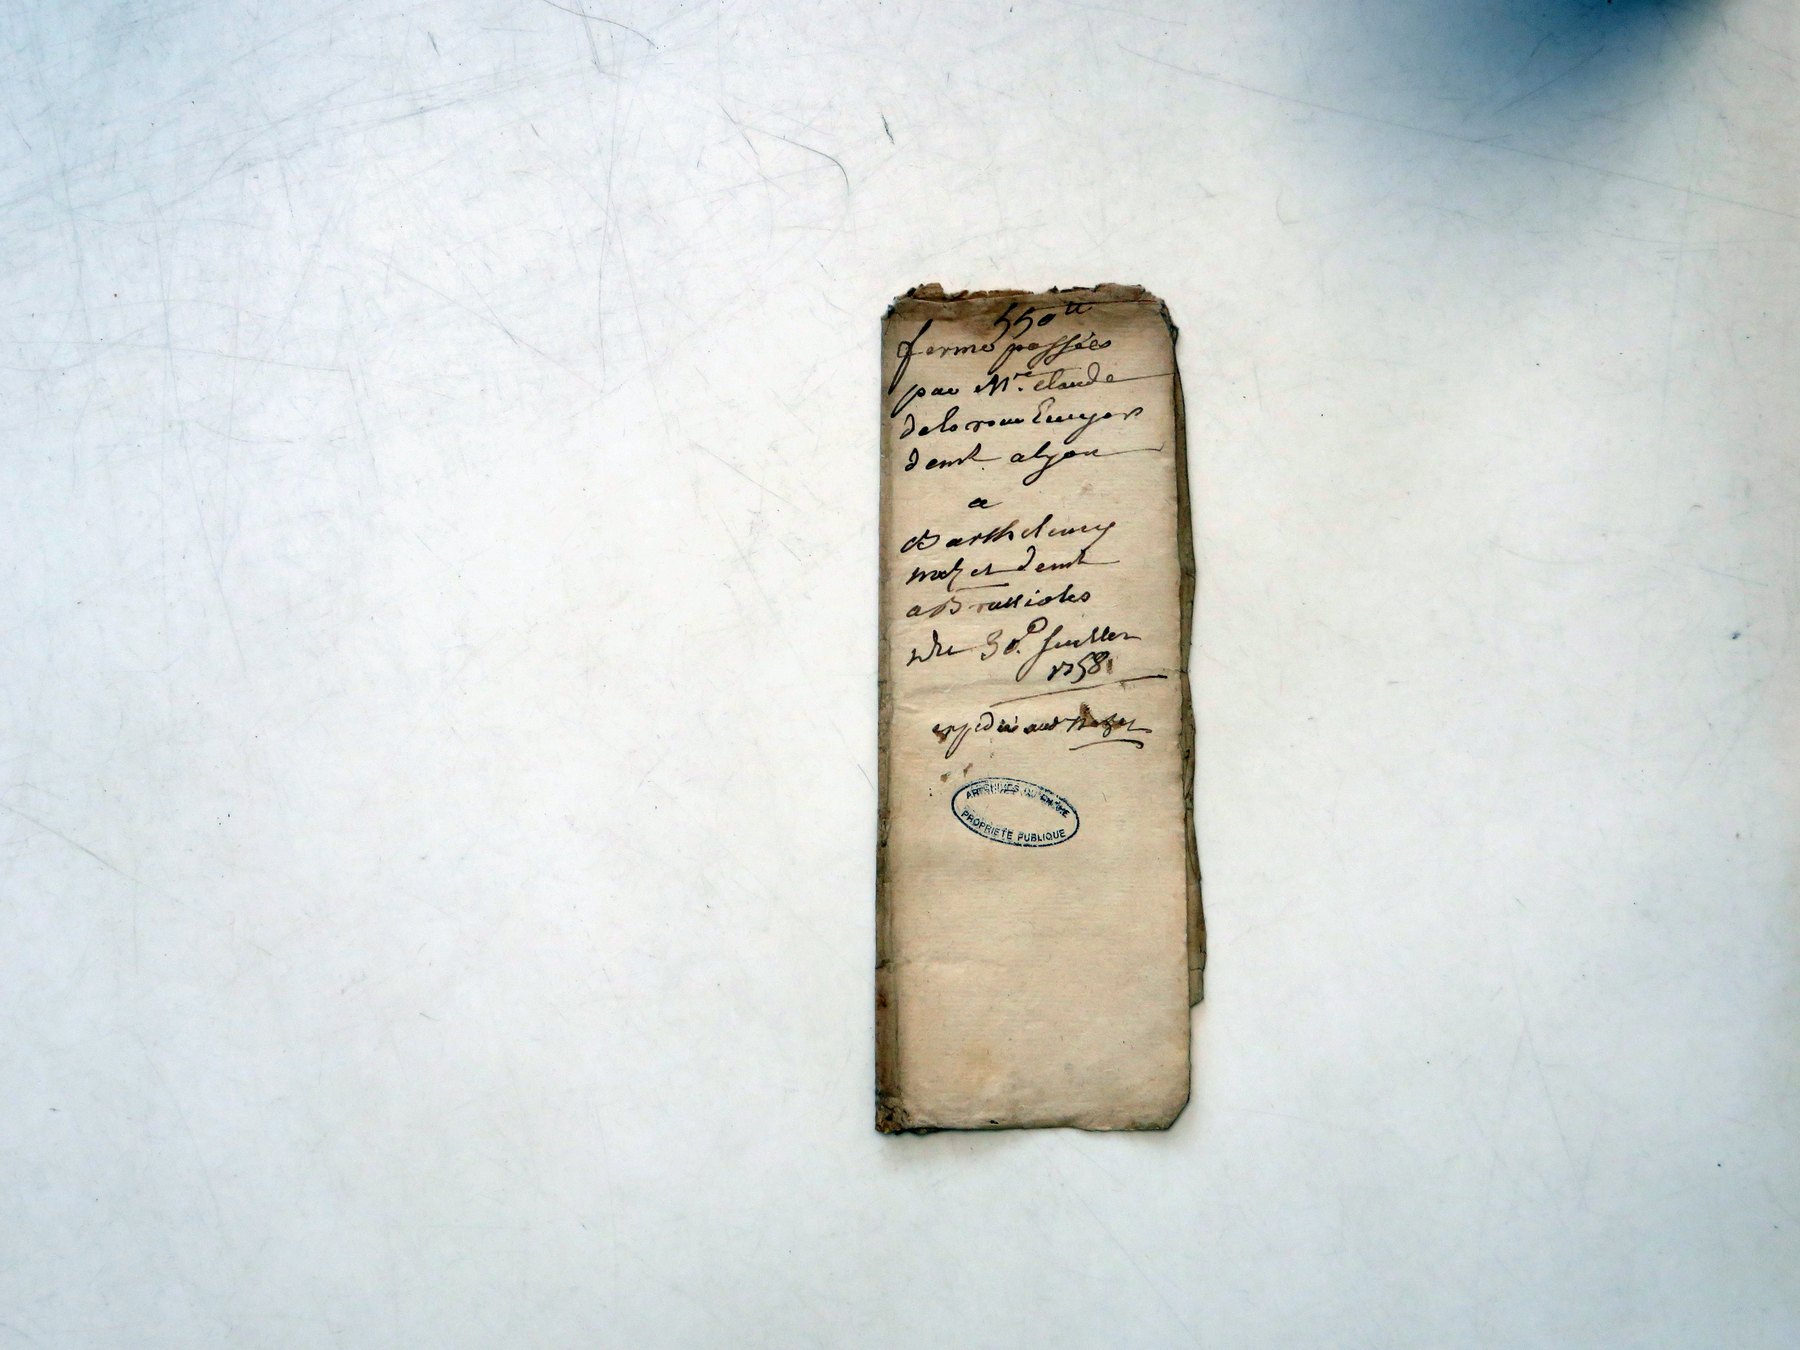 550ᵗᵗ
ferme passées
par Mʳᵉ. claude
dela roue Ecuyer
demt. alyon
a
Barthelemy
et demt
a Brussioles
du 30ᵉ. Juillet
1758
expedié aud
ARCHIVES DU RHÔNE
PROPRIÉTÉ PUBLIQUE